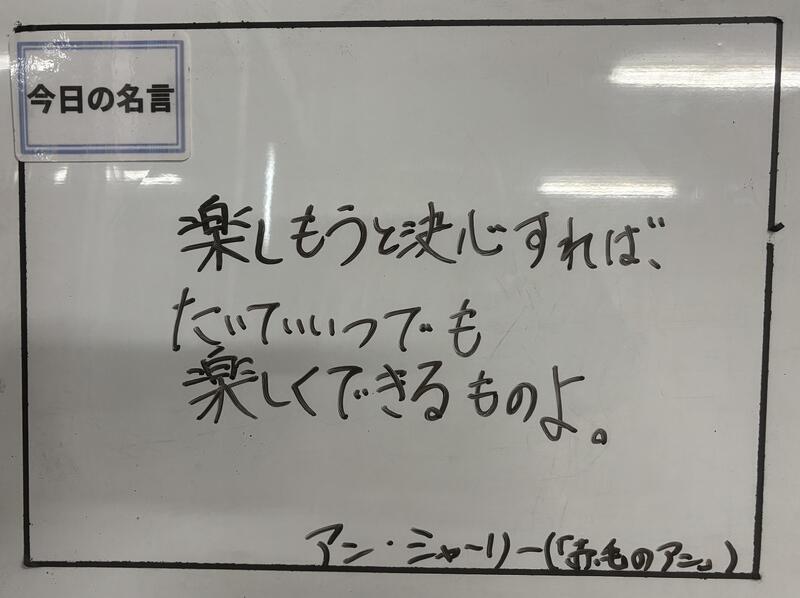 今日の名言
楽しもうと決心すれば、
たいていいつでも
楽しくできるものよ。
アン・シャーリー(「赤毛のアン」)